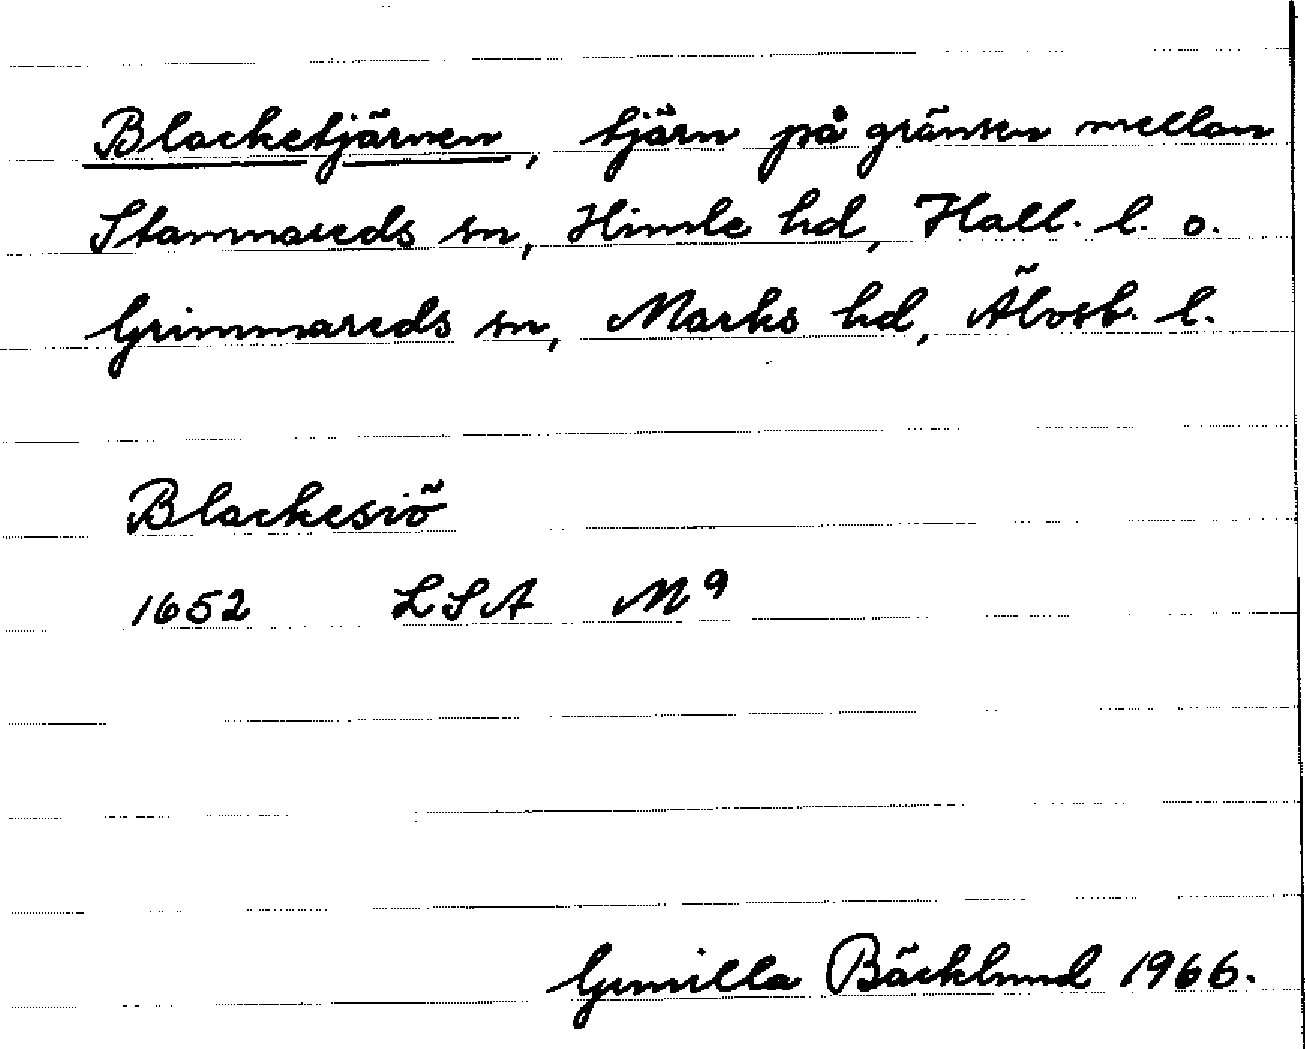 Blacketjärnen, tjärn på gränsen mellan
Stamnareds sn, Himle hd, Hall. l. o.
Grimmareds sn, Marks hd, Älvsb. l.
Blackesiö
1652 LSA M9
Gunilla Bäcklund 1966.